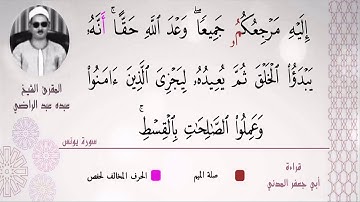 إِلَيْهِ مَرْجِعُكُمُۥ جَمِيعًا ۖ وَعْدَ ٱللَّهِ حَقًّا ۚ أَنَّهُۥ
يَبْدَؤُا۟ ٱلْخَلْقَ ثُمَّ يُعِيدُهُۥ لِيَجْزِىَ ٱلَّذِينَ ءَامَنُوا۟
وَعَمِلُوا۟ ٱلصَّـٰلِحَـٰتِ بِٱلْقِسْطِ ۚ
المقرئ الشيخ
عبده عبد الراضي
سورة يونس
قراءة
أبي جعفر المدني
صلة الميم
الحرف المخالف لحفص